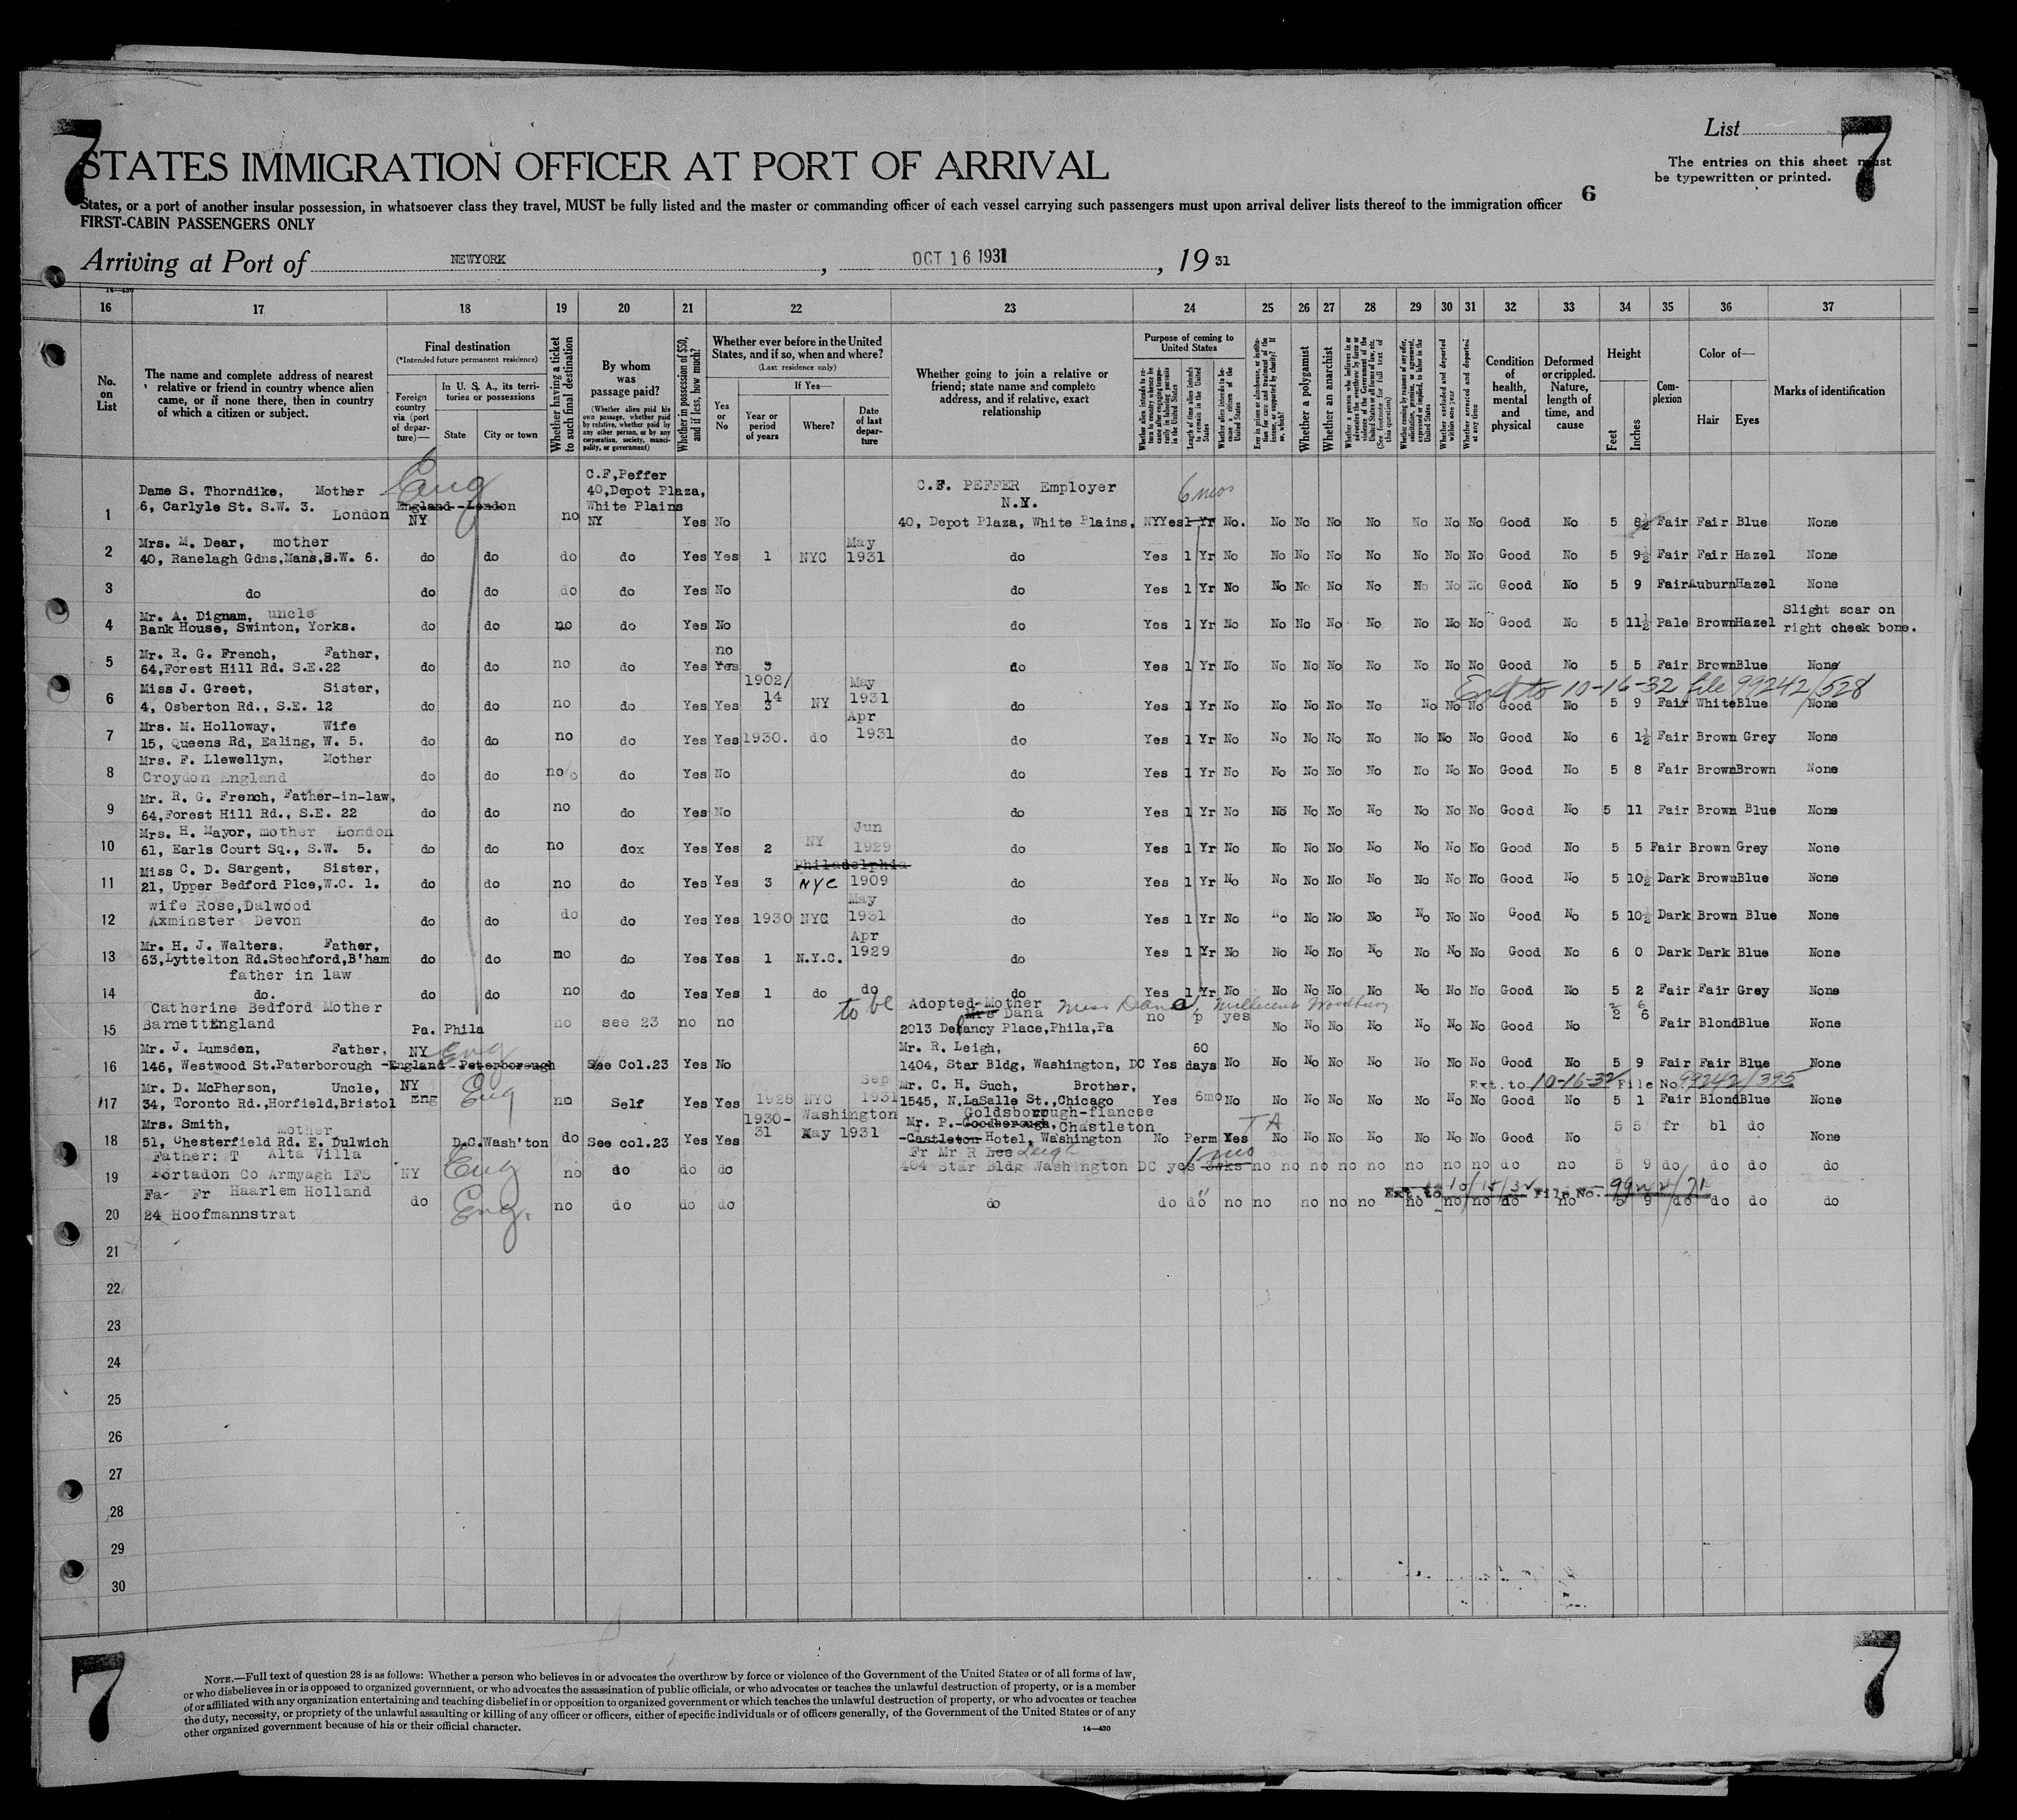 7
7
List
STATES IMMIGRATION OFFICER AT PORT OF ARRIVAL
The entries on this sheet must
be typewritten or printed.
6
States, or a port of another insular possession, in whatsoever class they travel, MUST be fully listed and the master or commanding officer of each vessel carrying such passengers must upon arrival deliver lists thereof to the immigration officer
FIRST-CABIN PASSENGERS ONLY
Arriving at Port of NEWYORK, OCT 16 1931, 19 31
14—430
16 17 18 19 20 21 22 23 24 25 26 27 28 29 30 31 32 33 34 35 36 37
No. on List
The name and complete address of nearest relative or friend in country whence alien came, or if none there, then in country of which a citizen or subject.
Final destination
(*Intended future permanent residence)
Foreign country via (port of departure)—
In U. S. A., its territories or possessions
State
City or town
Whether having a ticket to such final destination
By whom was passage paid?
(Whether alien paid his own passage, whether paid by relative, whether paid by any other person, or by any corporation, society, municipality, or government)
Whether in possession of $50, and if less, how much?
Whether ever before in the United States, and if so, when and where?
(Last residence only)
Yes or No
If Yes—
Year or period of years
Where?
Date of last departure
Whether going to join a relative or friend; state name and complete address, and if relative, exact relationship
Purpose of coming to United States
Length of time alien intends to remain in the United States
Whether alien intends to become a citizen of the United States
Whether a polygamist
Whether an anarchist
Whether excluded and deported within one year
Whether arrested and deported at any time
Condition of health, mental and physical
Deformed or crippled. Nature, length of time, and cause
Height
Feet
Inches
Complexion
Color of—
Hair
Eyes
Marks of identification
C.F,Peffer
Dame S. Thorndike, Mother Eng 40,Depot Plaza, C.F. PEFFER Employer 6 mos
6, Carlyle St. S.W. 3. England--London White Plains N.Y.
1 London NY no NY Yes No 40, Depot Plaza, White Plains, NY Yes 1 Yr No. No No No No No No No Good No 5 8½ Fair Fair Blue None
Mrs. M. Dear, mother May
2 40, Ranelagh Gdns,Mans,S.W. 6. do do do do Yes Yes 1 NYC 1931 do Yes 1 Yr No No No No No No No No Good No 5 9½ Fair Fair Hazel None
3 do do do do do Yes No do Yes 1 Yr No No No No No No No No Good No 5 9 Fair Auburn Hazel None
Mr. A. Dignam, uncle Slight scar on
4 Bank House, Swinton, Yorks. do do no do Yes No do Yes 1 Yr No No No No No No No No Good No 5 11½ Pale Brown Hazel right cheek bone.
Mr. R. G. French, Father, no
5 64,Forest Hill Rd. S.E.22 do do no do Yes Yes 3 do Yes 1 Yr No No No No No No No No Good No 5 5 Fair Brown Blue None
Miss J. Greet, Sister, 1902/14 May Ext to 10-16-32 file 99242/528
6 4, Osberton Rd., S.E. 12 do do no do Yes Yes 3 NY 1931 do Yes 1 Yr No No No No No No No No Good No 5 9 Fair White Blue None
Mrs. M. Holloway, Wife Apr
7 15, Queens Rd, Ealing, W. 5. do do no do Yes Yes 1930. do 1931 do Yes 1 Yr No No No No No No No No Good No 6 1½ Fair Brown Grey None
Mrs. F. Llewellyn, Mother
8 Croydon England do do no do Yes No do Yes 1 Yr No No No No No No No No Good No 5 8 Fair Brown Brown None
Mr. R. G. French, Father-in-law,
9 64,Forest Hill Rd., S.E. 22 do do no do Yes No do Yes 1 Yr No No No No No No No No Good No 5 11 Fair Brown Blue None
Mrs. H. Mayor, mother London Jun
10 61, Earls Court Sq., S.W. 5. do do no dox Yes Yes 2 NY 1929 do Yes 1 Yr No No No No No No No No Good No 5 5 Fair Brown Grey None
Miss C. D. Sargent, Sister, Philadelphia
11 21, Upper Bedford Plce,W.C. 1. do do no do Yes Yes 3 NYC 1909 do Yes 1 Yr No No No No No No No No Good No 5 10½ Dark Brown Blue None
wife Rose,Dalwood May
12 Axminster Devon do do do do Yes Yes 1930 NYC 1931 do Yes 1 Yr No No No No No No No No Good No 5 10½ Dark Brown Blue None
Mr. H. J. Walters, Father, Apr
13 63,Lyttelton Rd.Stechford,B'ham do do no do Yes Yes 1 N.Y.C. 1929 do Yes 1 Yr No No No No No No No No Good No 6 0 Dark Dark Blue None
father in law
14 do. do do no do Yes Yes 1 do do do Yes 1 Yr No No No No No No No No Good No 5 2 Fair Fair Grey None
Catherine Bedford Mother to be Adopted-Mother Miss Dana, Millicent Woodbury
Mrs Dana
15 Barnett England Pa. Phila no see 23 no no 2013 Delancy Place,Phila,Pa no p yes No No No No No No No Good No 2 6 Fair Blond Blue None
Mr. J. Lumsden, Father, NY Eng Mr. R. Leigh, 60
16 146, Westwood St.Paterborough -England--Peterborough See Col.23 Yes No 1404, Star Bldg, Washington, DC Yes days No No No No No No No No Good No 5 9 Fair Fair Blue None
Mr. D. McPherson, Uncle, NY Sep Mr. C. H. Such, Brother, Ext. to 10-16-32 File No. 99242/395
17 34, Toronto Rd.,Horfield,Bristol Eng Eng no Self Yes Yes 1928 NYC 1931 1545, N.LaSalle St.,Chicago Yes 6mo No No No No No No No No Good No 5 1 Fair Blond Blue None
Mrs. Smith, Mother 1930-31 Washington Goldsborough-fiancee
Mr. P.-Goodborough, Chastleton T A
18 51, Chesterfield Rd. E. Dulwich D.C. Wash'ton do See col.23 Yes Yes May 1931 -Castleton Hotel, Washington No Perm Yes No No No No No No No Good No 5 5 fr bl do None
Father: T Alta Villa Fr Mr R Lee Leigh 1 mo
19 Portadon Co Armyagh IFS NY Eng no do do do 404 Star Bldg Washington DC yes 3wks no no no no no no no no do no 5 9 do do do do
Fa- Fr Haarlem Holland Ext. to 10/15/32 File No. 99242/71
20 24 Hoofmannstrat do Eng. no do do do do do do" no no no no no no no no do no 5 9 do do do do
21
22
23
24
25
26
27
28
29
30
7
7
NOTE.—Full text of question 28 is as follows: Whether a person who believes in or advocates the overthrow by force or violence of the Government of the United States or of all forms of law,
or who disbelieves in or is opposed to organized government, or who advocates the assassination of public officials, or who advocates or teaches the unlawful destruction of property, or is a member
of or affiliated with any organization entertaining and teaching disbelief in or opposition to organized government or which teaches the unlawful destruction of property, or who advocates or teaches
the duty, necessity, or propriety of the unlawful assaulting or killing of any officer or officers, either of specific individuals or of officers generally, of the Government of the United States or of any
other organized government because of his or their official character.
14—430